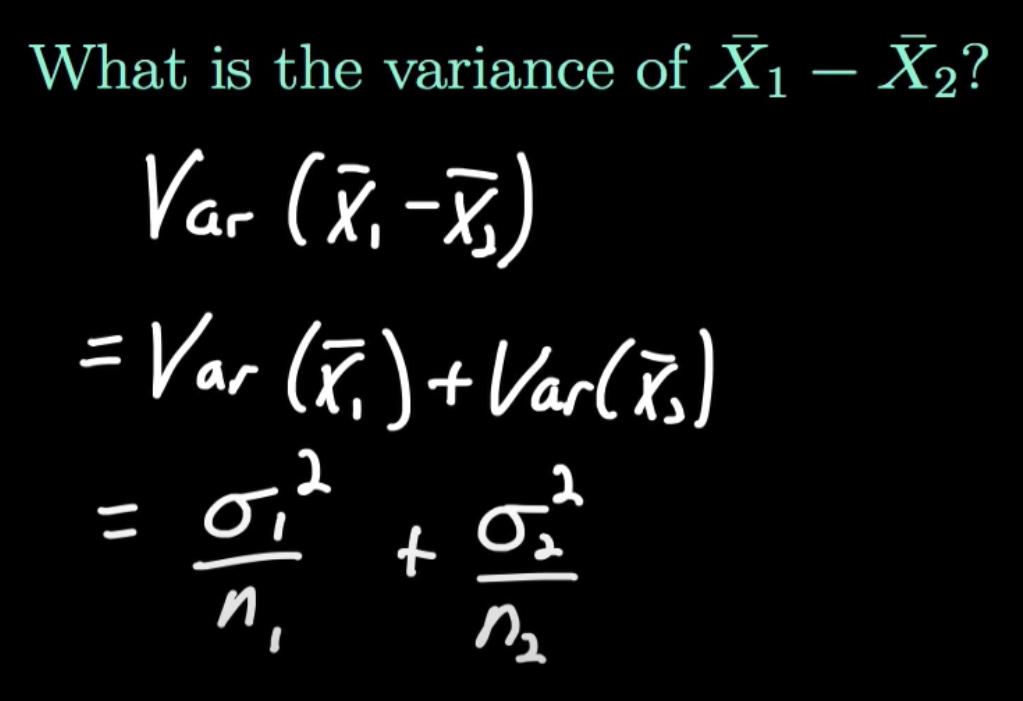 What is the variance of X̄₁ − X̄₂?
Var (X̄₁ - X̄₂)
= Var (X̄₁) + Var(X̄₂)
= σ₁²/n₁ + σ₂²/n₂